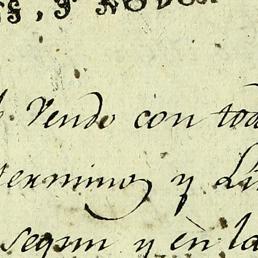 , y
Vendo con tod
termino, y Li
segun y èn la